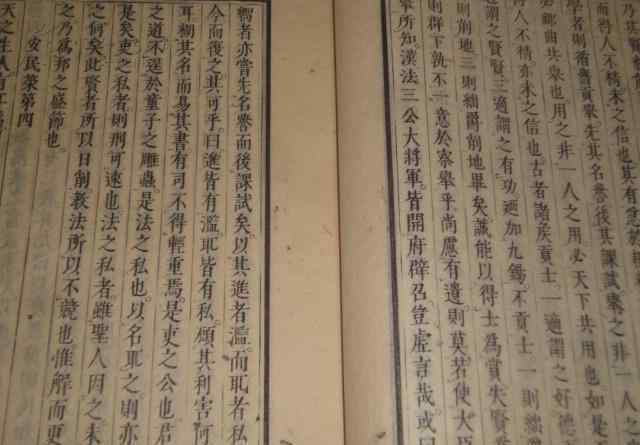 乃共
而得人不精亦未之信也其有念於
學者則脊脊貢舉先其名譽後其課試舉之非一人之
必鄉曲共舉也用之非一人之用必天下共用也如是
得人不精亦未之信也古者諸矦貢士一適謂之好德
適謂之賢賢三適謂之有功廼加九錫不貢士一則
則削地三則絀爵削地畢矣誠能以得士為賞失賢
則群下孰不一意於寮舉乎尚慮有遺則莫若使大臣
舉所知漢法三公大將軍皆開府辟召豈虛言哉或曰
鄉者亦嘗先名譽而後課試矣以其進者濫而取者私
今而後之其可乎曰進皆有濫取皆有私顧其利害何
耳糊其名而易其書有司不得輕重焉是吏之公也君
之道不逞於童子之雕蟲是法之私也以名取之則亦
是矣吏之私者則刑可速也法之私者雖聖人因之未
之何矣此賢者所以日削敎法所以不競也惟解而更
之乃為邦之盛節也
安民策第四
天之生人有